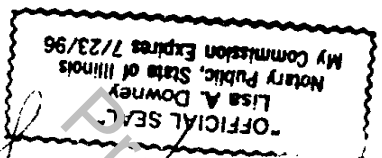 "OFFICIAL SEAL"
Lisa A. Downey
Notary Public, State of Illinois
My Commission Expires 7/23/96